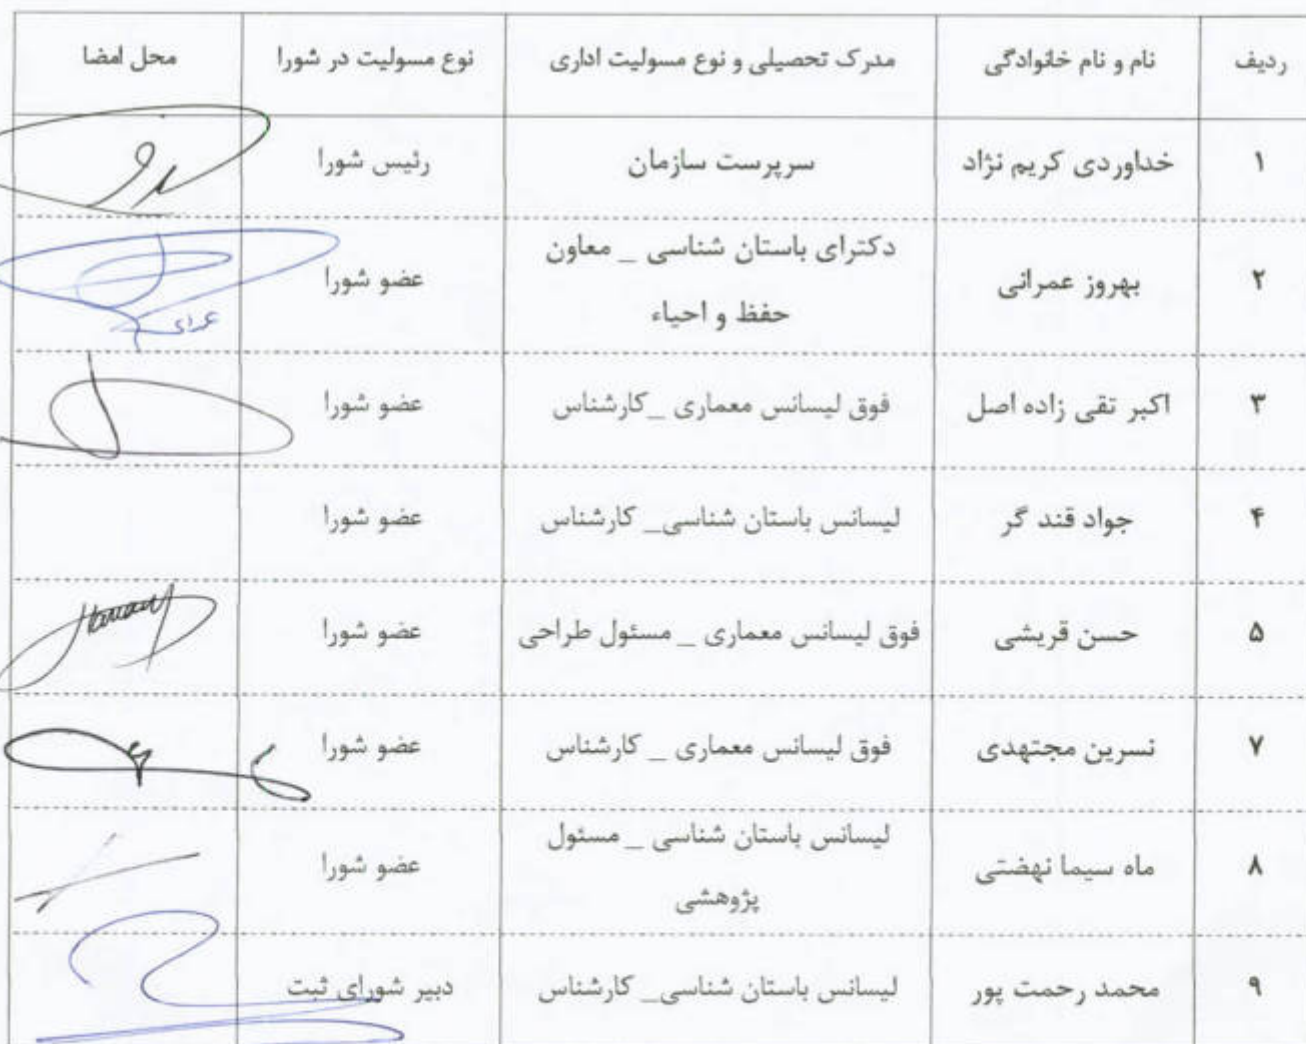 ردیف نام و نام خانوادگی مدرک تحصیلی و نوع مسولیت اداری نوع مسولیت در شورا محل امضا
۱ خداوردی کریم نژاد سرپرست سازمان رئیس شورا
۲ بهروز عمرانی دکترای باستان شناسی _ معاون
حفظ و احیاء عضو شورا
۳ اکبر تقی زاده اصل فوق لیسانس معماری _کارشناس عضو شورا
۴ جواد قند گر لیسانس باستان شناسی_ کارشناس عضو شورا
۵ حسن قریشی فوق لیسانس معماری _ مسئول طراحی عضو شورا
۷ نسرین مجتهدی فوق لیسانس معماری _ کارشناس عضو شورا
۸ ماه سیما نهضتی لیسانس باستان شناسی _ مسئول
پژوهشی عضو شورا
۹ محمد رحمت پور لیسانس باستان شناسی_ کارشناس دبیر شورای ثبت